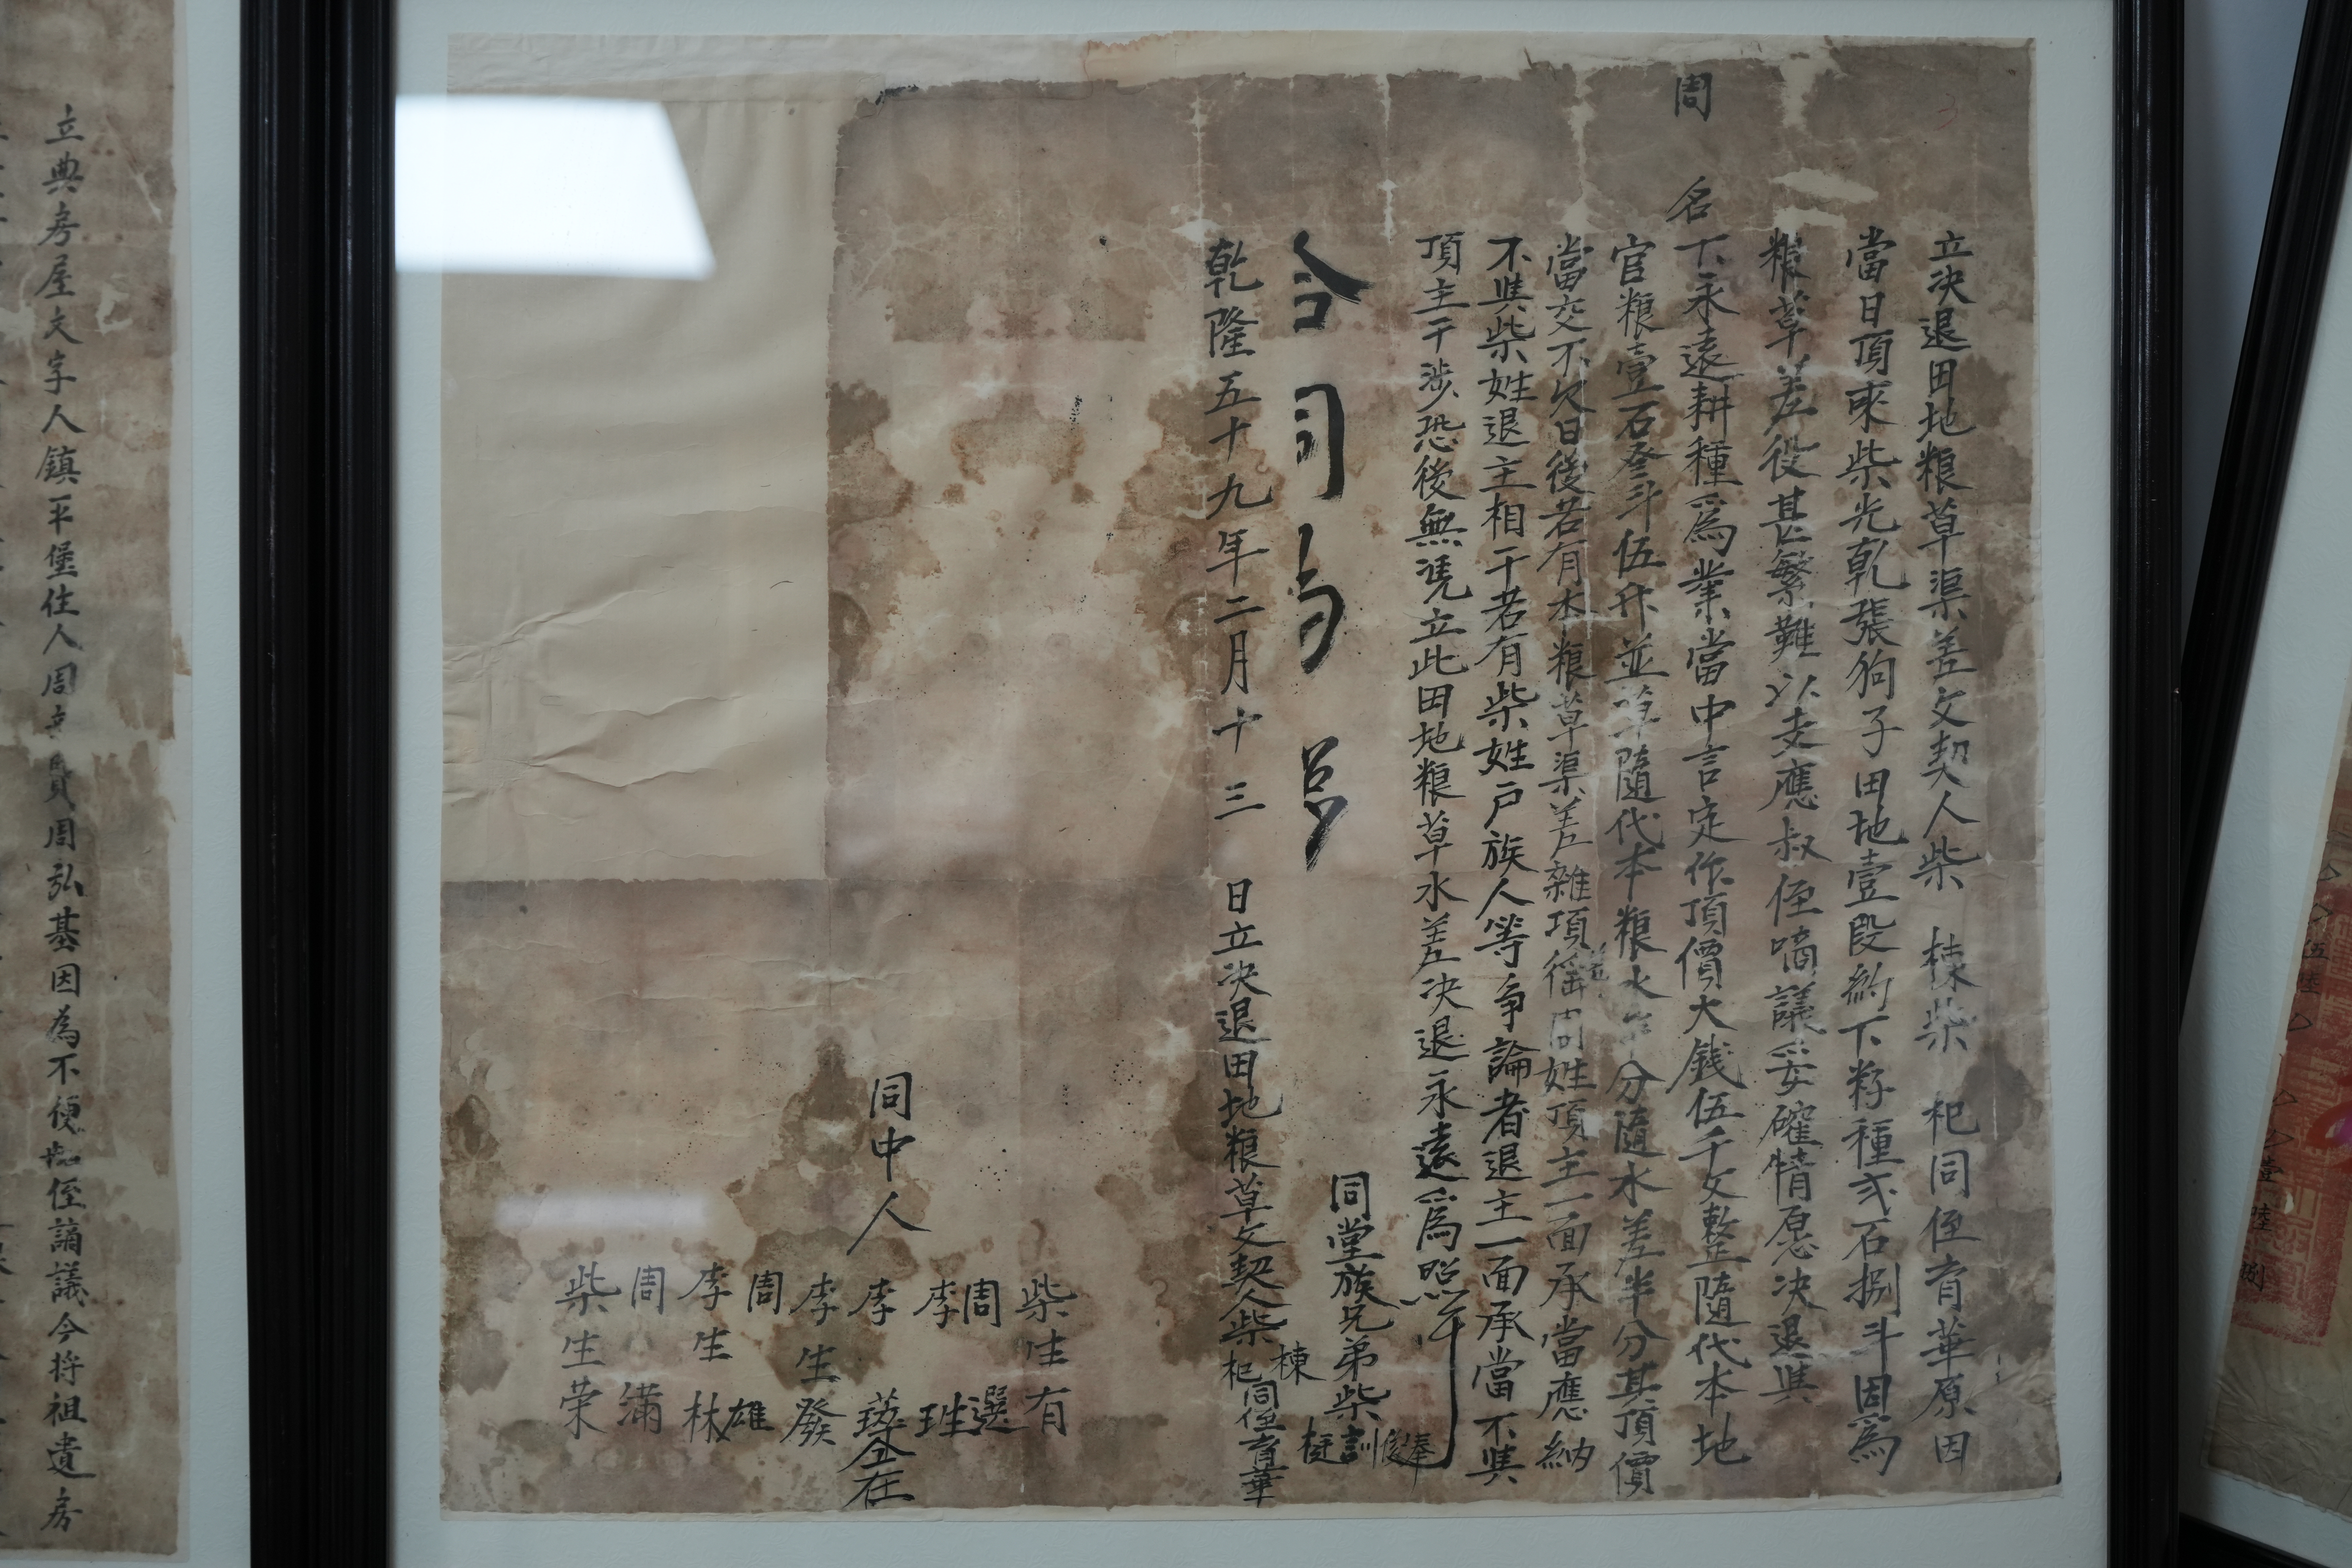 立決退田地粮草渠差文契人柴棟柴杞同侄育華原因
當日頂來柴光乾張狗子田地壹段約下籽種弍石捌斗因爲
粮草差役甚繁難以支應叔侄啇議妥確情愿決退與
周名下永遠耕種爲業當中言定作頂價大錢伍千文整隨代本地
官粮壹石叁斗伍升並草隨代本粮水分隨水差半分其頂價
當交不欠日後若有本粮草渠差雜項徭周姓頂主一面承當應納
不與柴姓退主相干若有柴姓戶族人等爭論者退主一面承當不與
頂主干涉恐後無凴立此田地粮草水差決退永遠爲照
同堂族兄弟柴奉俊訓
合同爲
乾隆五十九年二月十三日立決退田地粮草文契人柴棟杞同侄育華
同中人
柴生有
周選
李
李
李生發
周雄
李生林
周滿
柴生荣
仝在
立典房屋文字人鎮平堡住人周周弘基因為不便叔侄謪議今将祖遺房